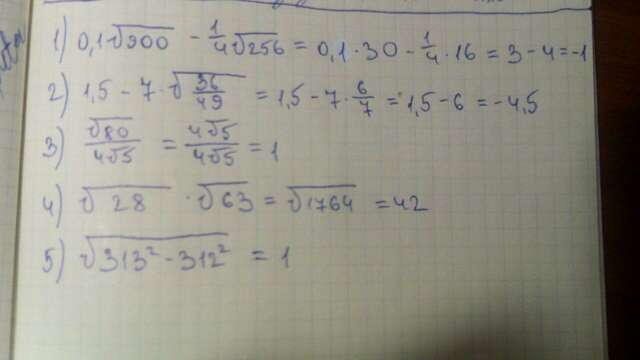 1) 0,1·√900 - 1/4√256 = 0,1·30 - 1/4·16 = 3 - 4 = -1
2) 1,5 - 7·√36/49 = 1,5 - 7·6/7 = 1,5 - 6 = -4,5
3) √80/4√5 = 4√5/4√5 = 1
4) √28 · √63 = √1764 = 42
5) √313² - 312² = 1